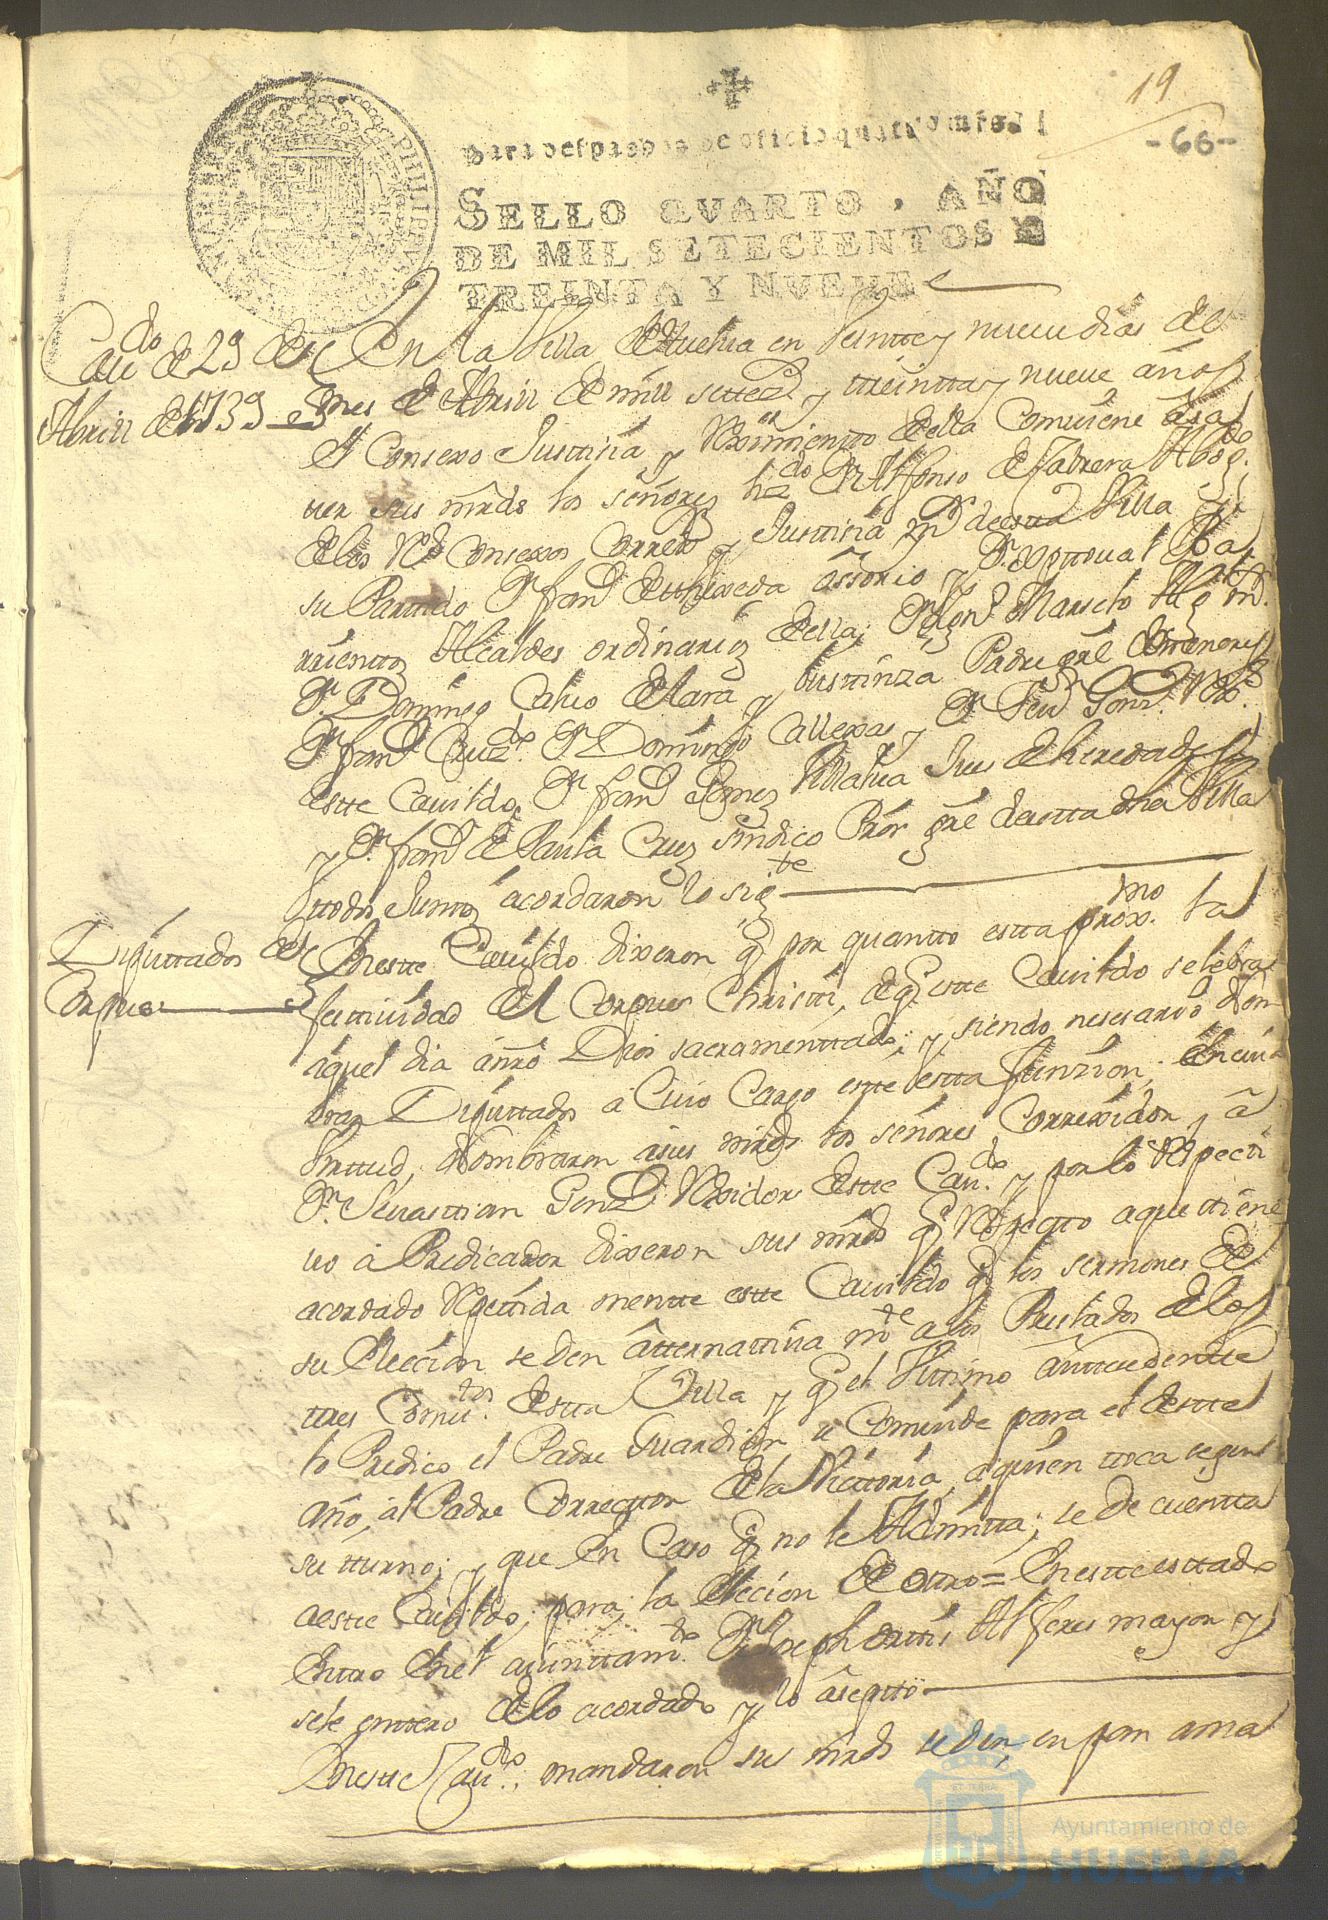 19
-66-
Para despachos de oficio quatro mrs.
SELLO QVARTO, AÑO
DE MIL SETECIENTOS Y
TREINTA Y NVEVE
PHILIPPVS
Cavdo de 29 de
Abrill de 1739
En la Villa de Huelva en Veintte y nueve dias del
mes de Abrill de mill settesos y treintta y nueve años
el Consexo Justticia y Reximientto della Combiene a sa
ver sus mrds los señores lizdo Dn Alfonso de Cabrera Abogdo
de los Rs Consexos Correxr y Justticia mr de esta Villa y
su Partido Dn franco de
rrientos Alcaldes ordinarios della; Dn Marselo Alg
Dn Domingo Calvo de Lara y Bustinza Padre gral de menores
Dn franco Dn Domingo Callexas y Dn Sevn Gonz Rexres
estte Cavildo, Dn franco Gomez Villalva Jues de heredades
y Dn franco de Paula Cruz sindico Pror gral de esta dha Villa
ttodos Junttos acordaron lo sigte
Diputtados del
Corpus
En estte Cavildo dixeron q por quantto estta proxmo la
festtividad del Corpus Christti, de q estte Cavildo selebra
aquel dia a nro Dios sacramenttado; y siendo nesesario Nom
brar Diputtados a Cuio Cargo estte estta funzion; En cuia
Virttud, Nombraron a sus mrds los señores Correxidor y a
Dn Sevasttian Gonz Rexidor de estte Cavdo y por lo respectti
vo a Predicador dixeron sus mrds q Respectto a que ttiene
acordado Repettida mentte estte Cavildo q los sermones de
su Eleccion se den alternattiva mte a los Prelados de los
ttres Convtos de estta Villa y q el Ulttimo antecedentte
lo Predico el Padre Guardian se Comvide para el de estte
año, al Padre Correcttor de la Victtoria, a quien ttoca segun
su tturno; y que en Caso q no le Admitta; se de cuentta
a estte Cavildo, para la Eleccion de otro = En estte esttado
Entro en el aiunttamto Dn Joseph Alferes mayor y
sele enttero de lo acordado y lo aseptto
En estte Cavdo mandaron sus mrds se den en pan ama
Ayuntamiento de
HUELVA